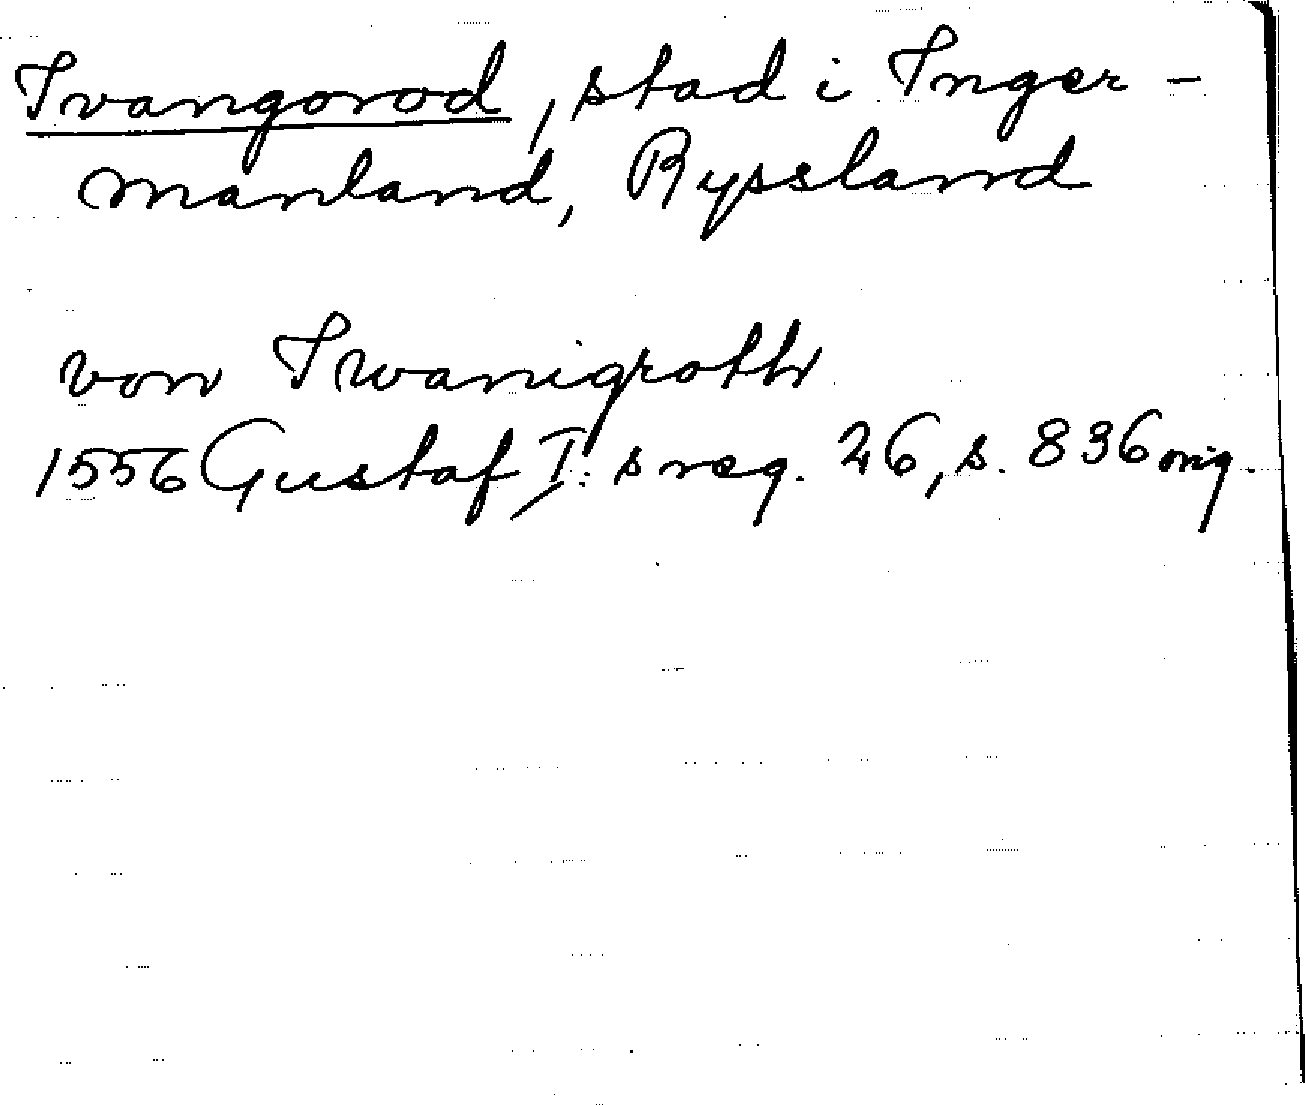 Ivangorod, stad i Inger-
manland, Ryssland
von Iwanigroth
1556 Gustaf I:s reg. 26, s. 836 orig.